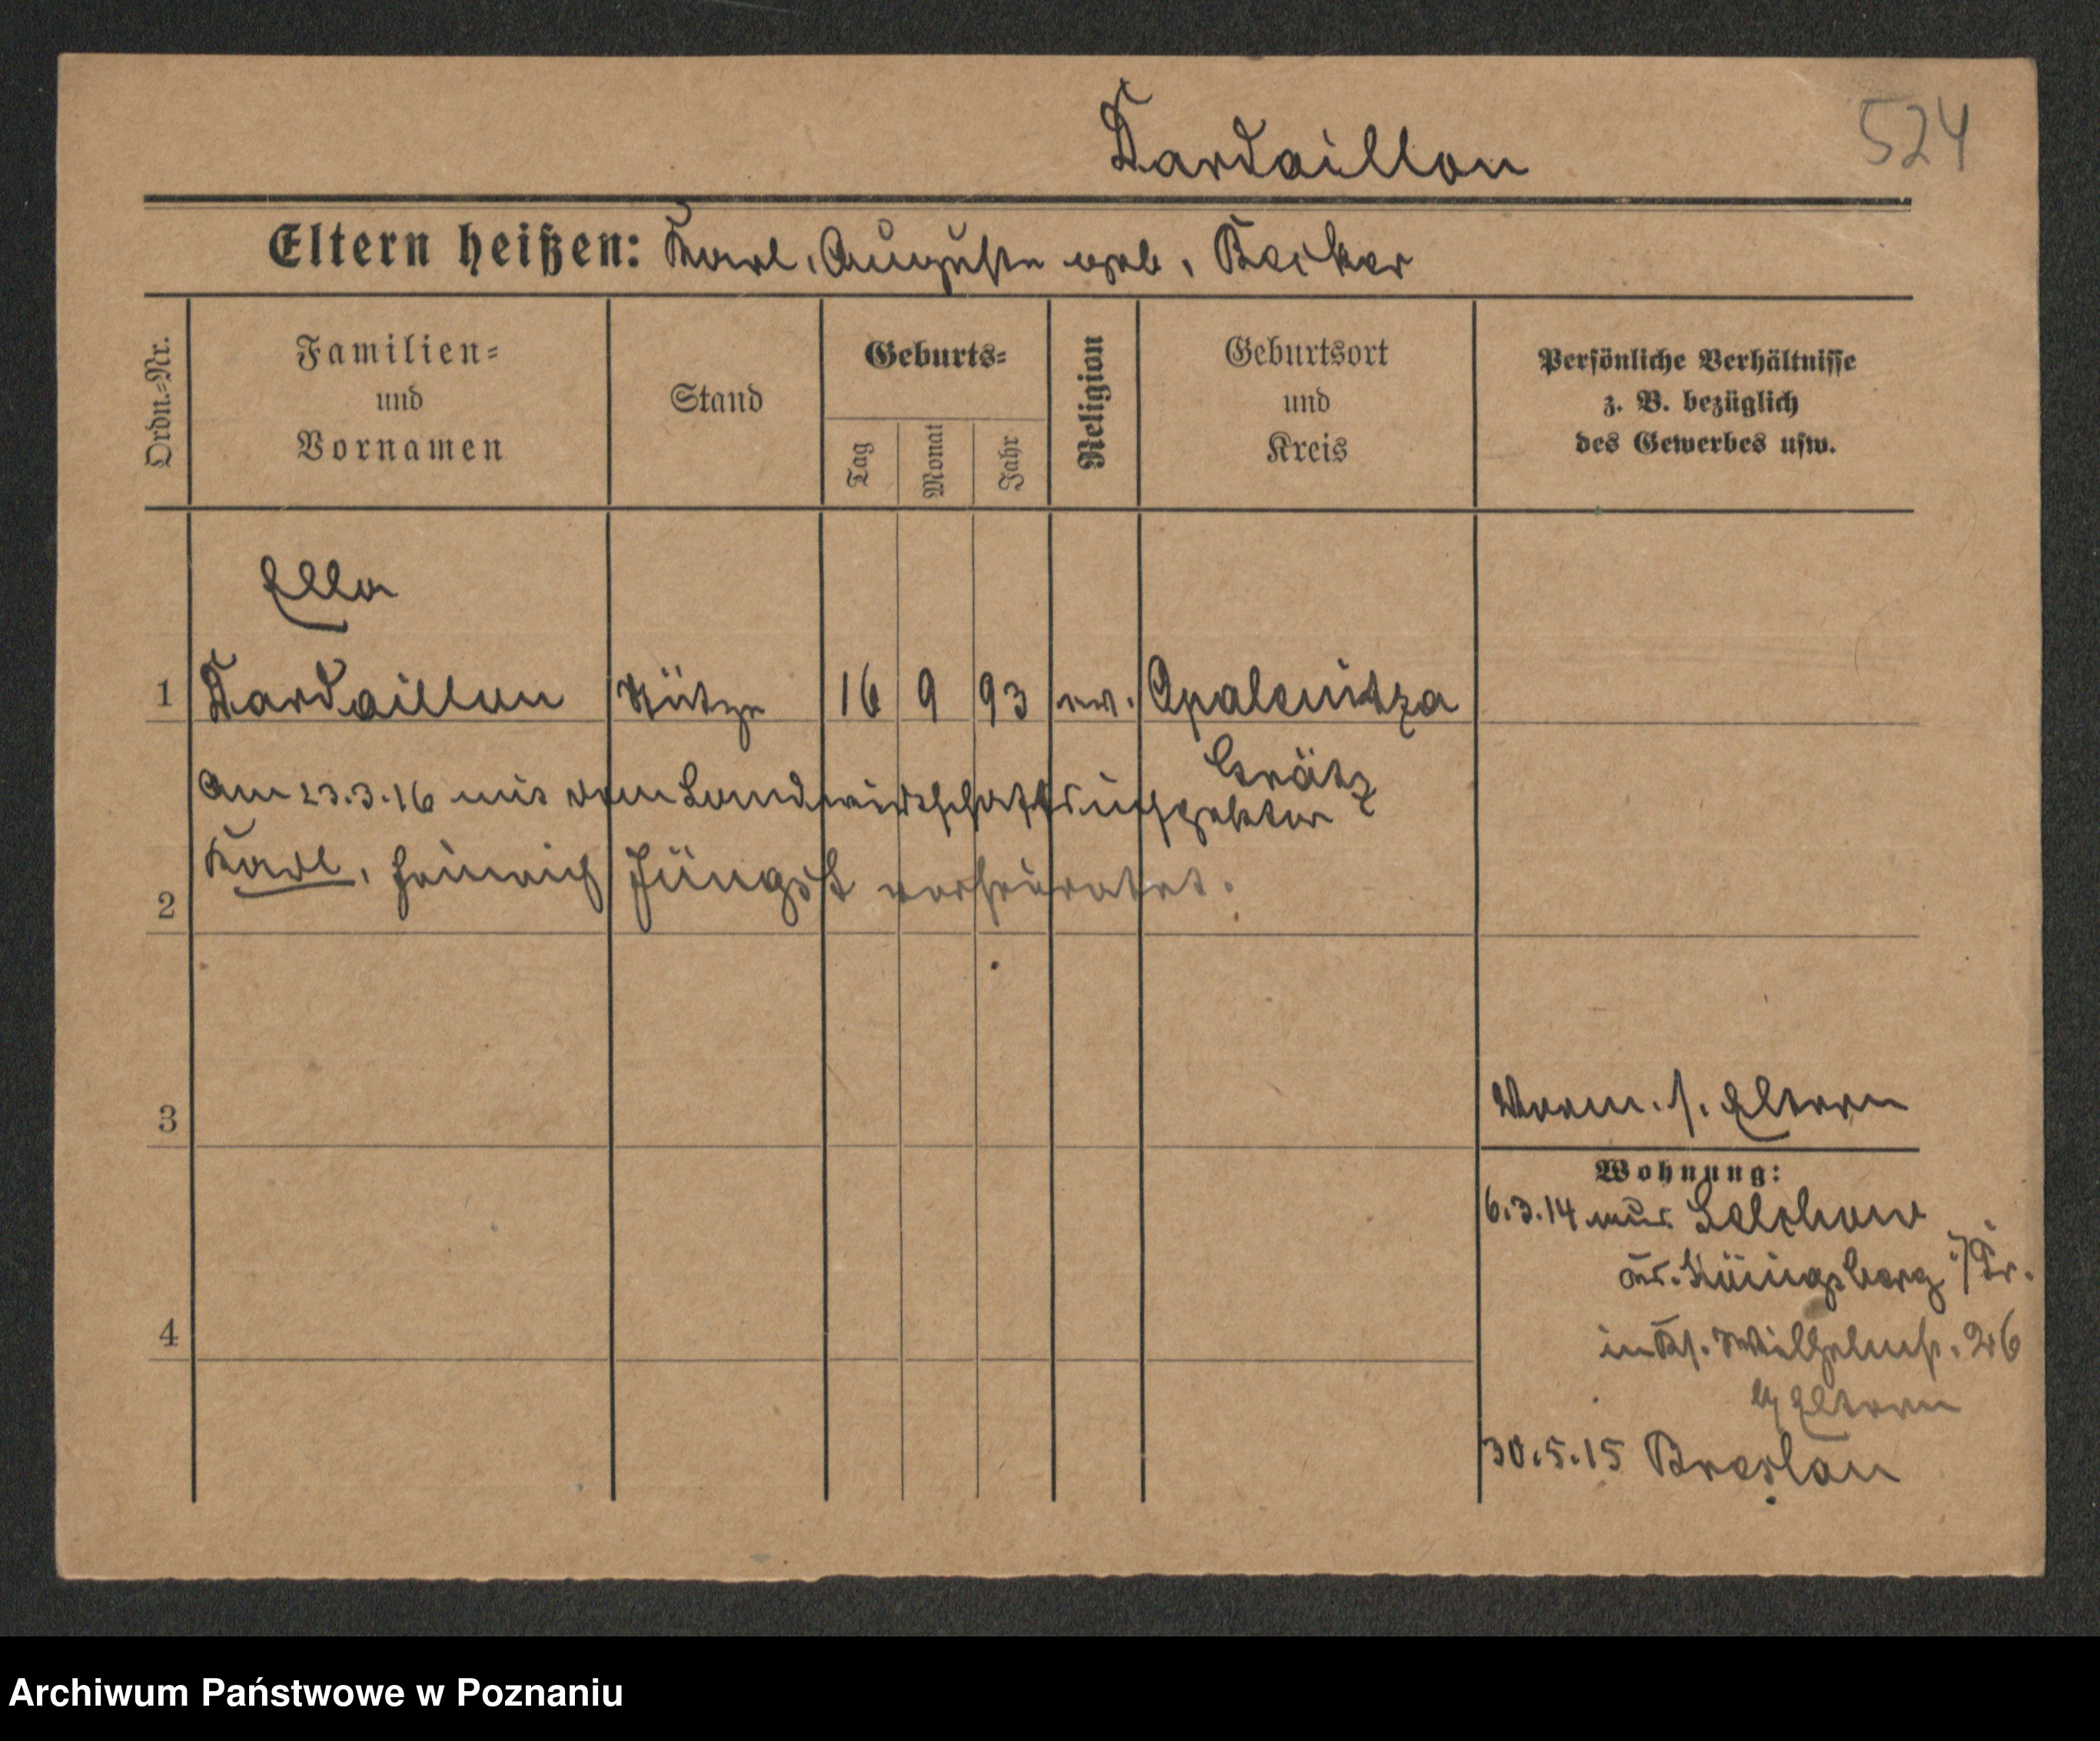 Tardaillon
524
Eltern heißen: Karl, Auguste geb. Becker
Ordn.=Nr.
Familien=
und
Vornamen
Stand
Geburts=
Tag
Monat
Jahr
Religion
Geburtsort
und
Kreis
Persönliche Verhältnisse
z. B. bezüglich
des Gewerbes usw.
Ella
1 Tardaillon Stütze 16 9 93 ev. Opalenitza
Grätz
Am 23.3.16 mit dem Landwirtschaftsinspektor
2 Karl, Heinrich Jüngst verheiratet.
3
Verm. s. Eltern
Wohnung:
6.3.14 aus Selchow
Kr. Königsberg i/Pr.
4
in Ks. Wilhelmst. 26
b/ Eltern
30.5.15 Breslau
Archiwum Państwowe w Poznaniu